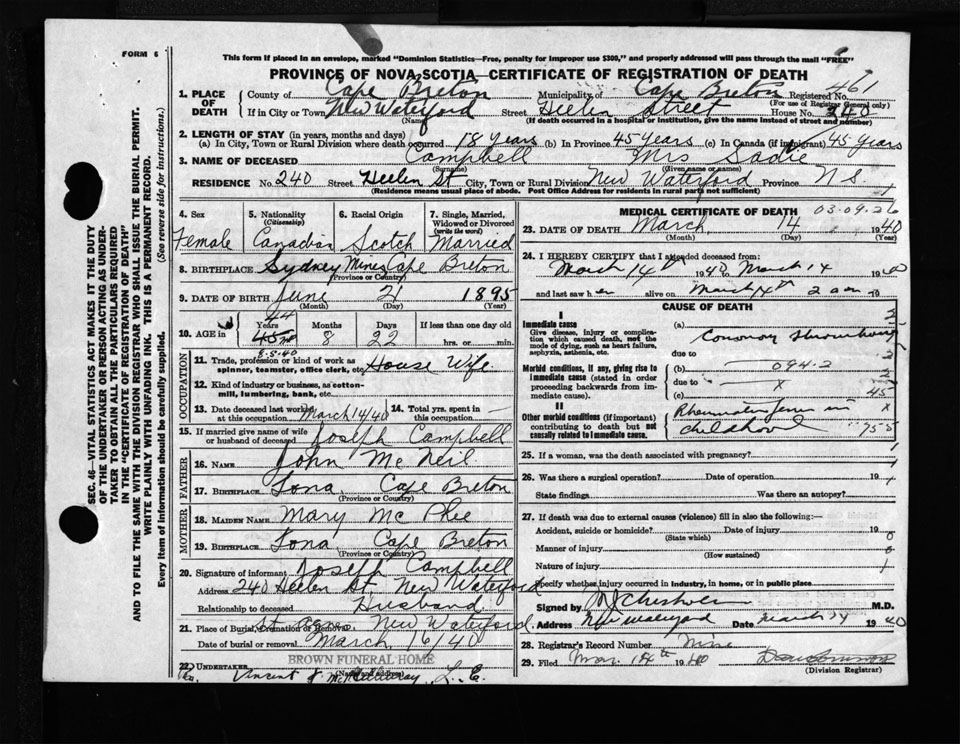 FORM 6
This form if placed in an envelope, marked "Dominion Statistics—Free, penalty for improper use $300," and properly addressed will pass through the mail "FREE"
PROVINCE OF NOVA SCOTIA—CERTIFICATE OF REGISTRATION OF DEATH
461
1. PLACE OF DEATH County of Cape Breton Municipality of Cape Breton Registered No.
(For use of Registrar General only)
If in City or Town New Waterford Street Heelen Street House No. 240
(Name) (If death occurred in a hospital or institution, give the name instead of street and number)
2. LENGTH OF STAY (in years, months and days)
(a) In City, Town or Rural Division where death occurred 18 years (b) In Province 45 years (c) In Canada (if immigrant) 45 years
3. NAME OF DECEASED Campbell Mrs Sadie
(Surname) (Given name or names)
RESIDENCE No. 240 Street Heelen St City, Town or Rural Division New Waterford Province N.S.
(Residence means usual place of abode. Post Office Address for residents in rural parts not sufficient)
4. Sex Female
5. Nationality (Citizenship) Canadian
6. Racial Origin Scotch
7. Single, Married, Widowed or Divorced (write the word) Married
8. BIRTHPLACE Sydney Mines Cape Breton
(Province or Country)
9. DATE OF BIRTH June 21 1895
(Month) (Day) (Year)
10. AGE in Years 44 Months 8 Days 22 If less than one day old hrs. or min.
8-5-40
OCCUPATION
11. Trade, profession or kind of work as spinner, teamster, office clerk, etc. House Wife
12. Kind of industry or business, as cotton-mill, lumbering, bank, etc.
13. Date deceased last worked at this occupation March 14/40 14. Total yrs. spent in this occupation
15. If married give name of wife or husband of deceased Joseph Campbell
FATHER
16. NAME John Mc Neil
17. BIRTHPLACE Iona, Cape Breton
(Province or Country)
MOTHER
18. MAIDEN NAME Mary Mc Phee
19. BIRTHPLACE Iona, Cape Breton
(Province or Country)
20. Signature of informant Joseph Campbell
Address 240 Heelen St. New Waterford
Relationship to deceased Husband
21. Place of Burial, Cremation or Removal St. Agnes New Waterford
Date of burial or removal March 16/40
BROWN FUNERAL HOME
22. UNDERTAKER
(Name and address)
Per. Vincent J. McGillivray L. E.
MEDICAL CERTIFICATE OF DEATH
03-09-26
23. DATE OF DEATH March 14 1940
(Month) (Day) (Year)
24. I HEREBY CERTIFY that I attended deceased from:
March 14th 1940 to March 14 1940
and last saw her alive on March 14th 2 am 19
CAUSE OF DEATH
I
Immediate cause
Give disease, injury or complication which caused death, not the mode of dying, such as heart failure, asphyxia, asthenia, etc.
(a) Coronary Thrombosis
due to
Morbid conditions, if any, giving rise to immediate cause (stated in order proceeding backwards from immediate cause).
(b) 094-2
due to x
(c) 45
II
Other morbid conditions (if important) contributing to death but not causally related to immediate cause.
Rheumatic fever in x
childhood 755
25. If a woman, was the death associated with pregnancy?
26. Was there a surgical operation? Date of operation 19
State findings Was there an autopsy?
27. If death was due to external causes (violence) fill in also the following:—
Accident, suicide or homicide? Date of injury 19
(State which)
Manner of injury
(How sustained)
Nature of injury
Specify whether injury occurred in industry, in home, or in public place
Signed by M J Chisholm M.D.
Address New Waterford Date March 14 1940
28. Registrar's Record Number Nine
29. Filed Mar. 14th 1940
(Division Registrar)
SEC. 46—VITAL STATISTICS ACT MAKES IT THE DUTY
OF THE UNDERTAKER OR PERSON ACTING AS UNDER-
TAKER TO OBTAIN ALL THE PARTICULARS REQUIRED
IN THE "CERTIFICATE OF REGISTRATION OF DEATH"
AND TO FILE THE SAME WITH THE DIVISION REGISTRAR WHO SHALL ISSUE THE BURIAL PERMIT.
WRITE PLAINLY WITH UNFADING INK. THIS IS A PERMANENT RECORD.
Every item of information should be carefully supplied. (See reverse side for instructions.)